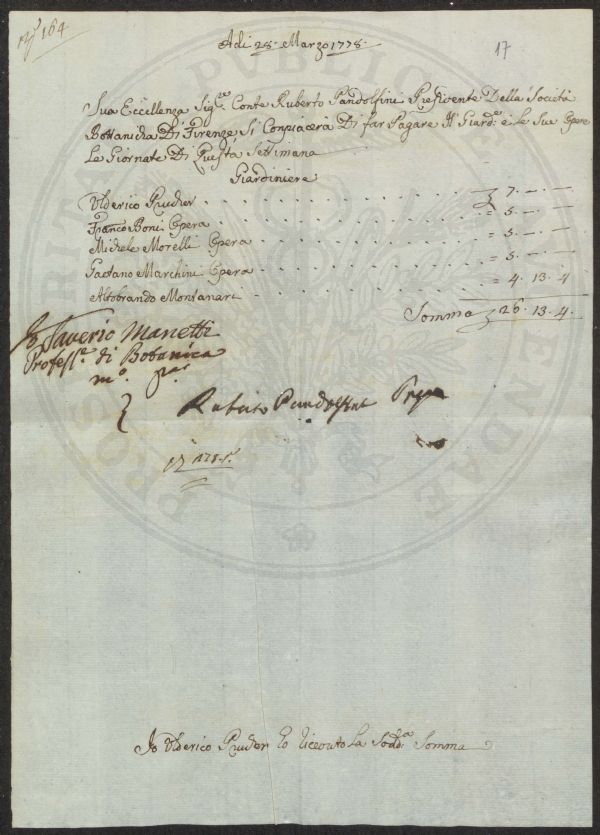 N.º 164
17
Adi 28. Marzo 1778.
Sua Eccellenza Sig.re Conte Ruberto Pandolfini Presidente Della Società
Bottanicha Di Firenze Si Conpiacerà Di far Pagare Al Giard.re e Le Sue Opere
Le Giornate Di Questa Settimana
Giardiniere
Ulderico Prucher . . . 7. — —
Franco Boni Opera . . . = 5. — —
Michele Morelli Opera . . . = 5. — —
Gaetano Marchini Opera . . . = 5. — —
Altobrando Montanari . . . = 4. 13. 4
Somma 26. 13. 4
Io Saverio Manetti
Profess.re di Botanica
m.º
Ruberto Pandolfini Pre
Io Ulderico Prucher ho riceouto La Sod.a Somma
PROSPERITATI PUBLICAE AUGENDAE